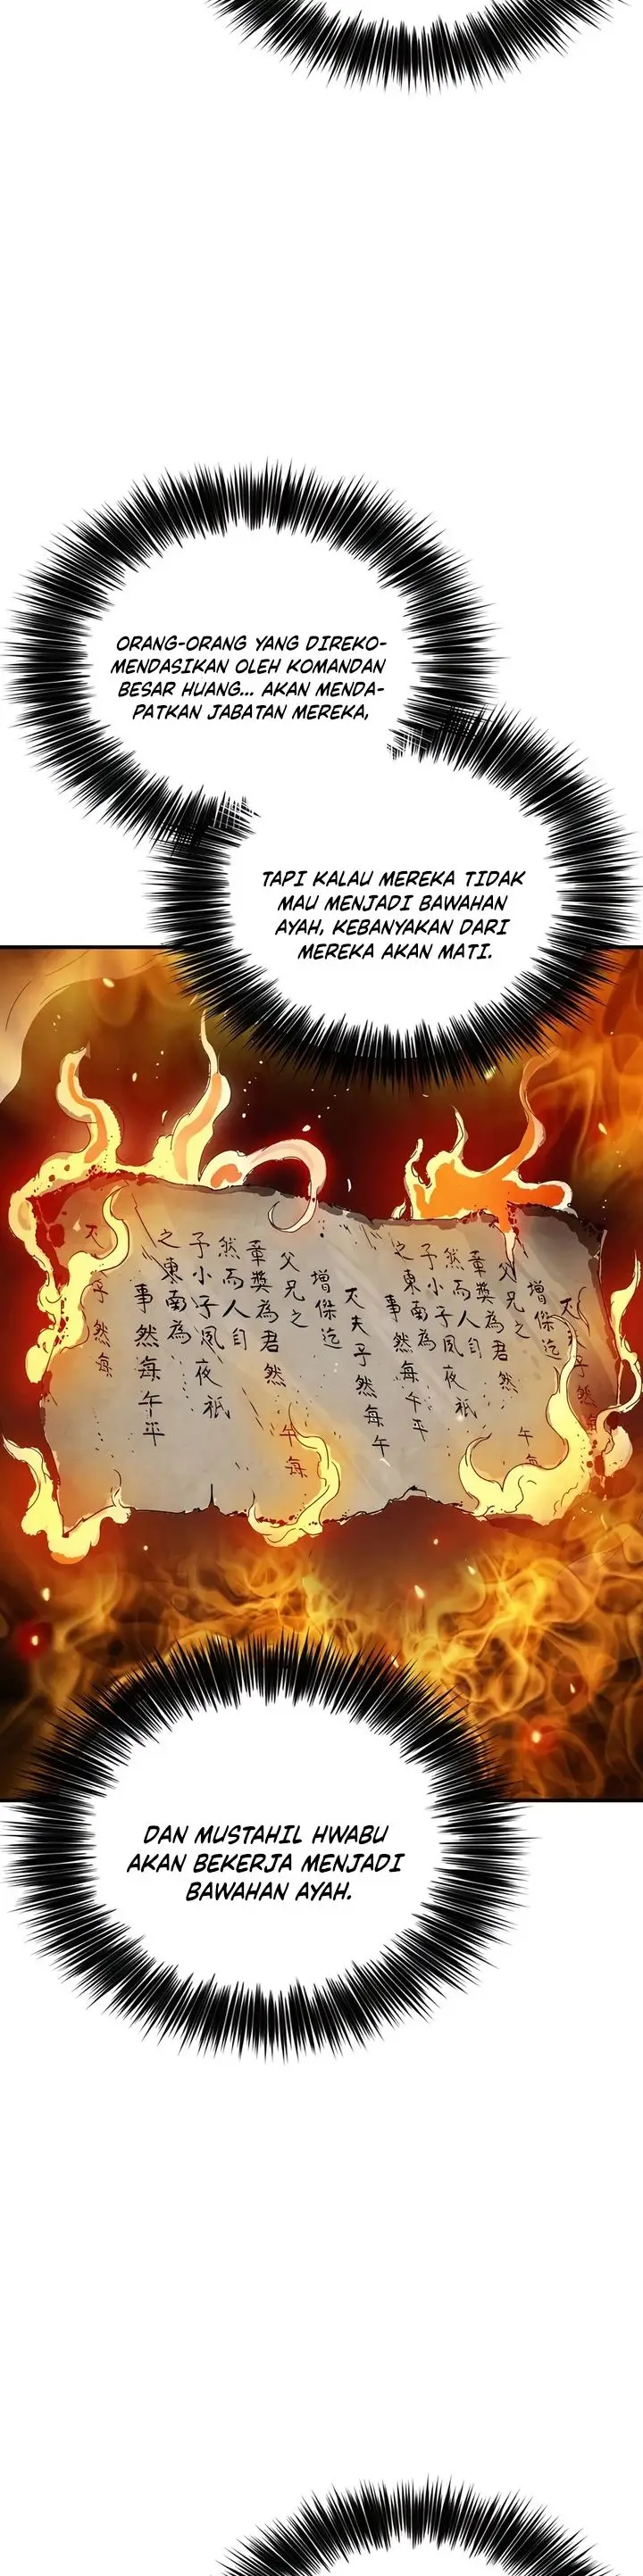 ORANG-ORANG YANG DIREKO-
MENDASIKAN OLEH KOMANDAN
BESAR HUANG... AKAN MENDA-
PATKAN JABATAN MEREKA,
TAPI KALAU MEREKA TIDAK
MAU MENJADI BAWAHAN
AYAH, KEBANYAKAN DARI
MEREKA AKAN MATI.
天夫子然每午
增傑迄
父兄之
章獎為君然
然而人自
子小子夙夜祇
之東南為
事然每午平
子然每
午每
增傑迄
父兄之
章獎為君然
然而人自
子小子夙夜祇
之東南為
事然每午平
DAN MUSTAHIL HWABU
AKAN BEKERJA MENJADI
BAWAHAN AYAH.